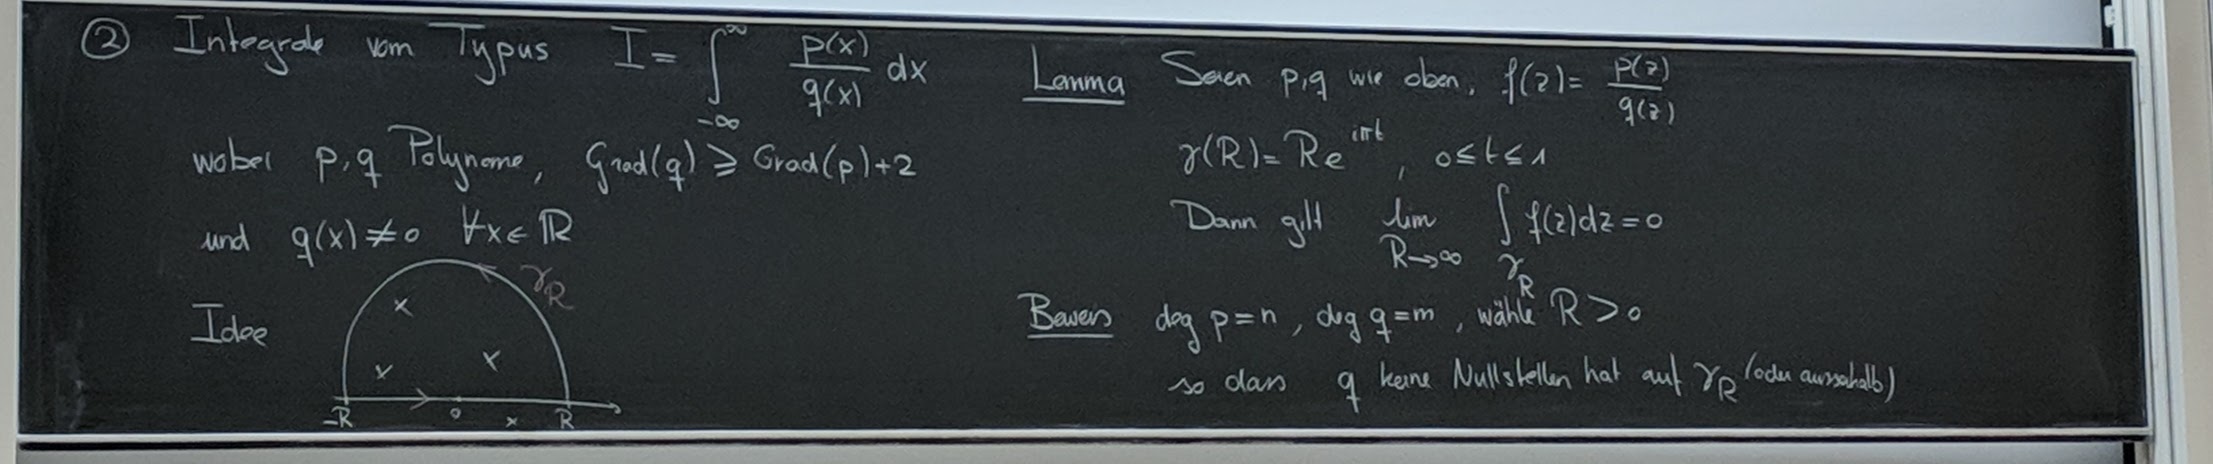 ② Integrale vom Typus I = ∫_{-∞}^{∞} p(x)/q(x) dx
wobei p,q Polynome, Grad(q) ≥ Grad(p)+2
und q(x) ≠ 0 ∀x ∈ ℝ
Idee
γ_R
-R 0 R
Lemma Seien p,q wie oben, f(z) = p(z)/q(z)
γ(R) = Re^{iπt}, 0 ≤ t ≤ 1
Dann gilt lim_{R→∞} ∫_{γ_R} f(z)dz = 0
Beweis deg p = n, deg q = m, wähle R > 0
so dass q keine Nullstellen hat auf γ_R (oder ausserhalb)